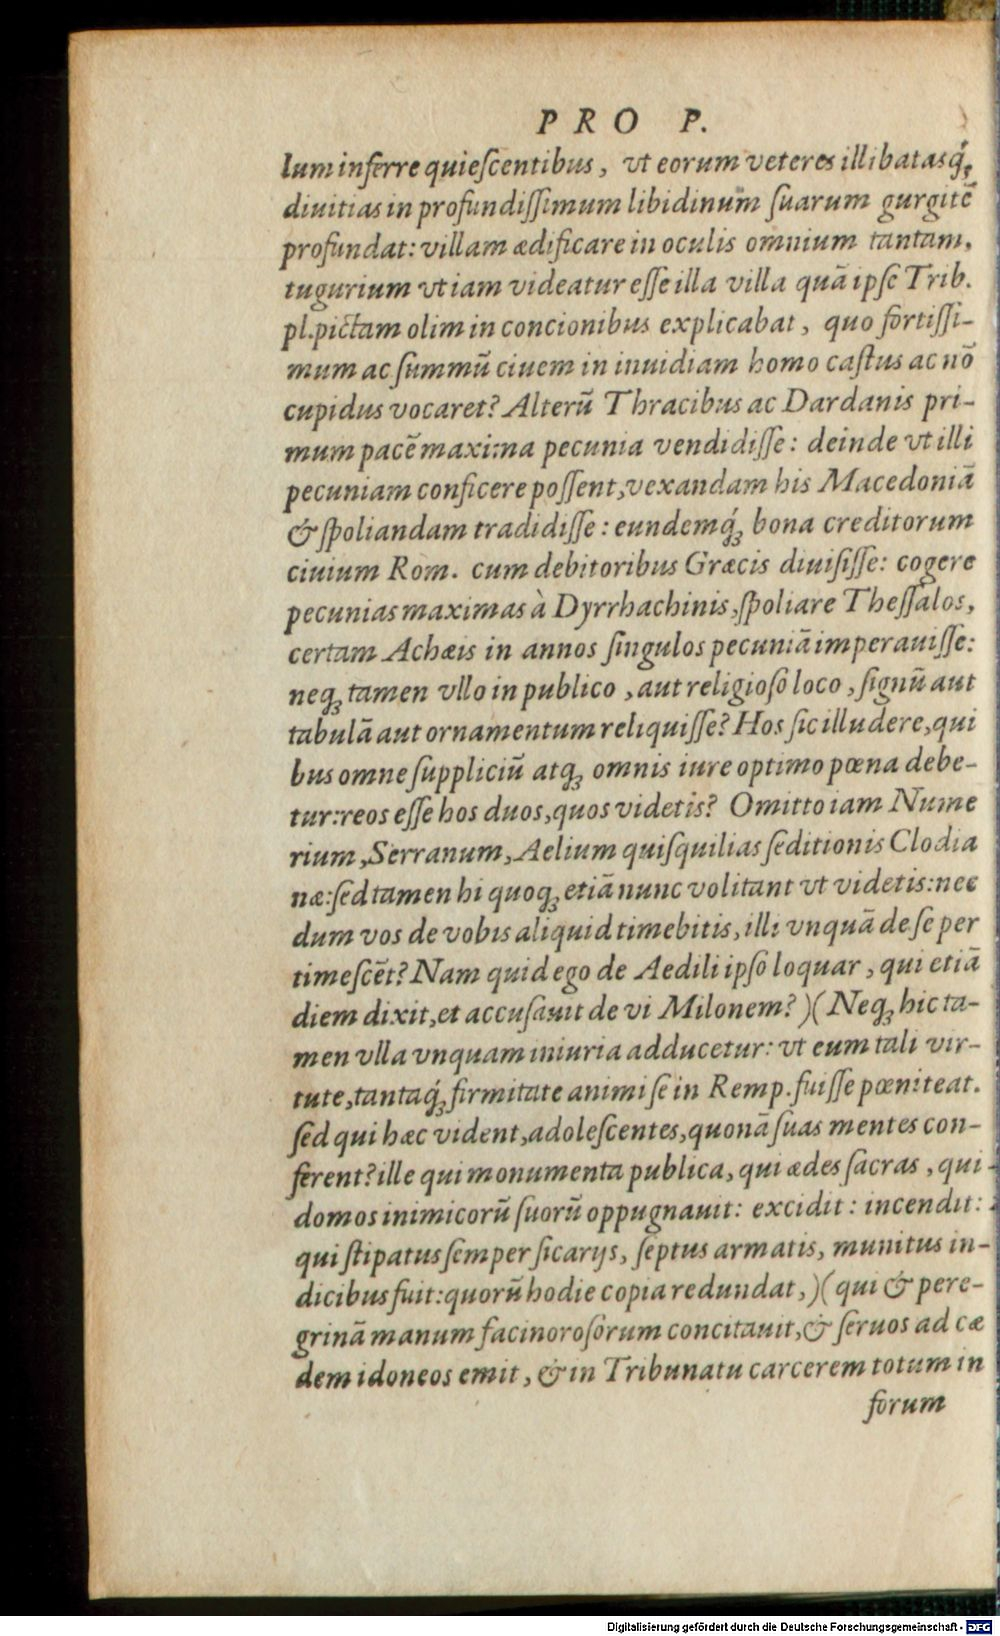 PRO P.
lum inferre quieſcentibus, vt eorum veteres illibatasq́;
diuitias in profundiſſimum libidinum̄ ſuarum gurgitē
profundat: villam ædificare in oculis omnium tantam,
tugurium vt iam videatur eſſe illa villa quā ipſe Trib.
pl. pictam olim in concionibus explicabat, quo fortiſſi-
mum ac ſummū ciuem in inuidiam homo caſtus ac nō
cupidus vocaret? Alterū Thracibus ac Dardanis pri-
mum pacē maxima pecunia vendidiſſe: deinde vt illi
pecuniam conficere poſſent, vexandam his Macedoniā
& ſpoliandam tradidiſſe: eundemq́; bona creditorum
ciuium Rom. cum debitoribus Græcis diuiſiſſe: cogere
pecunias maximas à Dyrrhachinis, ſpoliare Theſſalos,
certam Achæis in annos ſingulos pecuniā imperauiſſe:
neq; tamen vllo in publico, aut religioſo loco, ſignū aut
tabulā aut ornamentum reliquiſſe? Hos ſic illudere, qui
bus omne ſuppliciū atq; omnis iure optimo pœna debe-
tur: reos eſſe hos duos, quos videtis? Omitto iam Nume
rium, Serranum, Aelium quiſquilias ſeditionis Clodia
næ: ſed tamen hi quoq; etiā nunc volitant vt videtis: nec
dum vos de vobis aliquid timebitis, illi vnquā de ſe per
timeſcēt? Nam quid ego de Aedili ipſo loquar, qui etiā
diem dixit, et accuſauit de vi Milonem? )( Neq; hic ta-
men vlla vnquam iniuria adducetur: vt eum tali vir-
tute, tantaq́; firmitate animi ſe in Remp. fuiſſe pœniteat.
ſed qui hæc vident, adoleſcentes, quonā ſuas mentes con-
ferent? ille qui monumenta publica, qui ædes ſacras, qui
domos inimicorū ſuorū oppugnauit: excidit: incendit:
qui ſtipatus ſemper ſicarijs, ſeptus armatis, munitus in-
dicibus fuit: quorū hodie copia redundat, )( qui & pere-
grinā manum facinoroſorum concitauit, & ſeruos ad cæ
dem idoneos emit, & in Tribunatu carcerem totum in
forum
Digitalisierung gefördert durch die Deutsche Forschungsgemeinschaft - DFG